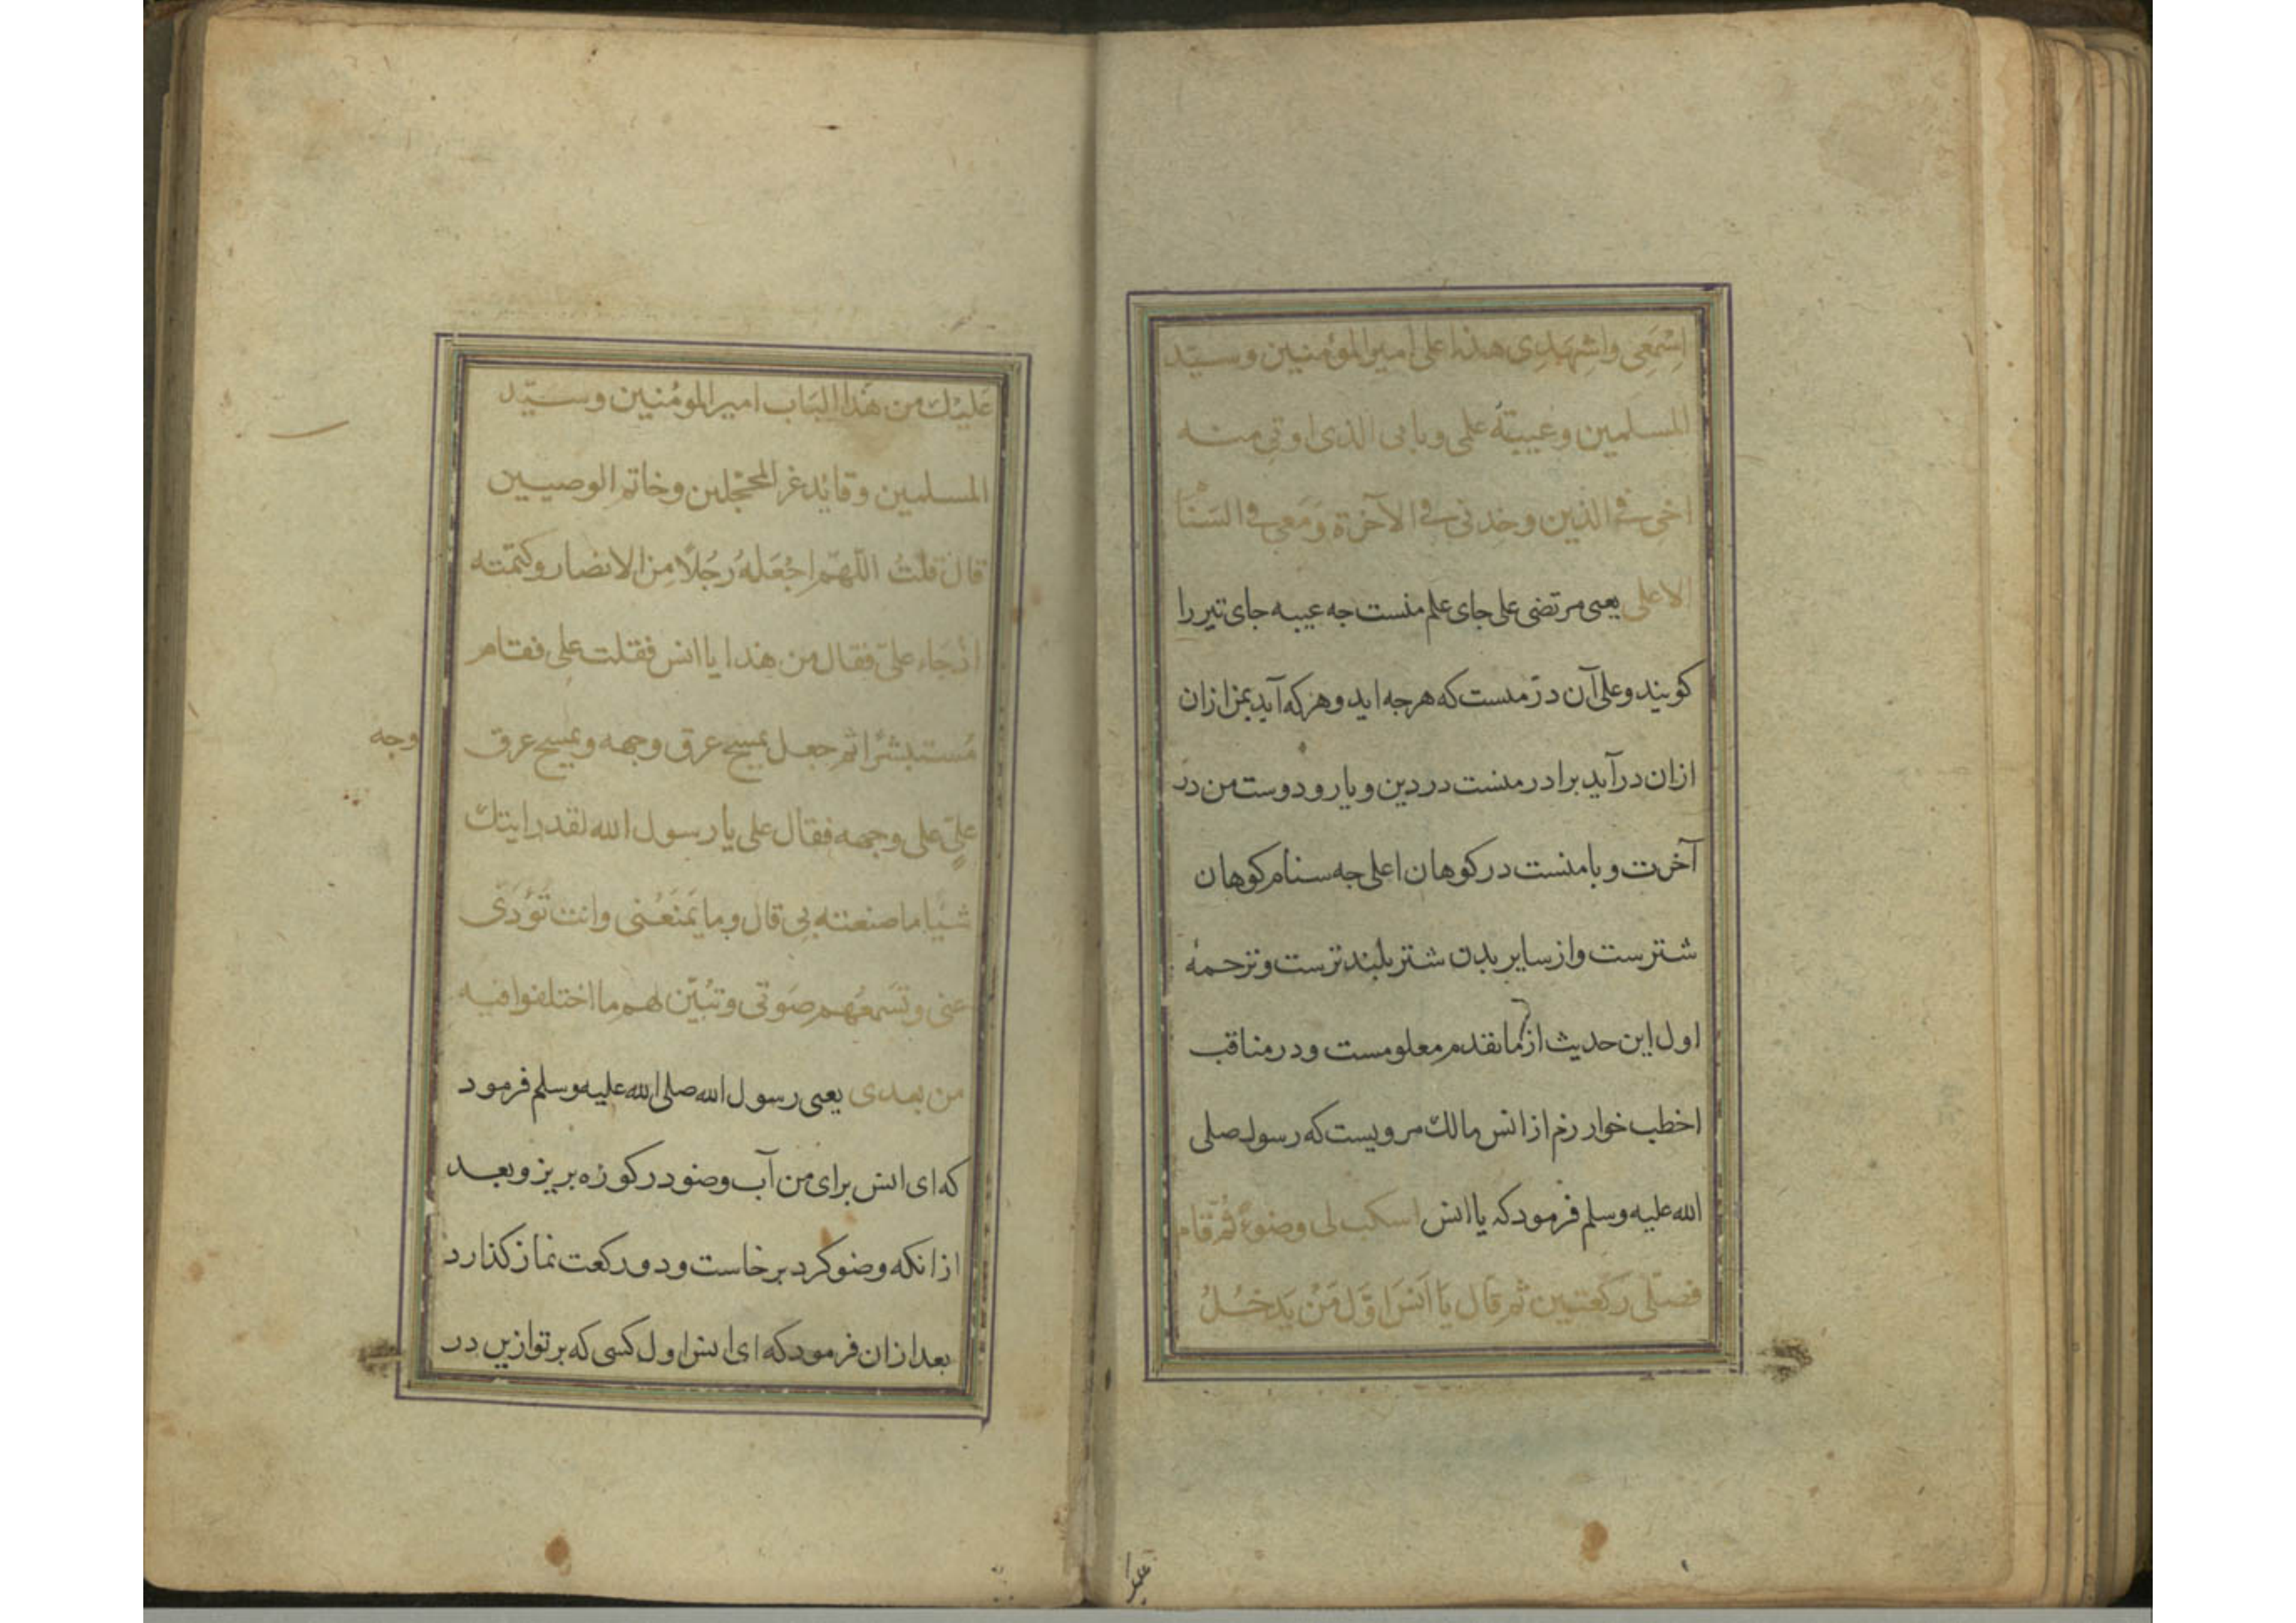 اِسْمَعِی واشهَدِی هذا علی امیر المؤمنین وسیّد
المسلمین وعیبة علمی وبابی الذی اوتی منه
اخی فی الدین وخدنی فی الآخرة وَمَعی فی السَنٰا
الاعلی یعنی مرتضی علی جای علم منست جه عیبه جای تیر را
کویند وعلی آن در منست که هرجه اید وهرکه آید بمن ازان
ازان در آید برادر منست در دین ویار و دوست من در
آخرت و با منست در کوهان اعلی جه سنام کوهان
شترست واز سایر بدن شتر بلندترست وترجمهٔ
اول این حدیث از ما تقدم معلومست ودر مناقب
اخطب خوار رزم از انس مالک مرویست که رسول صلی
الله علیه وسلم فرمود که یا انس اسکب لی وضوءً ثُمّ قام
فصلّی رکعتین ثم قال یَا اَنَس اوّل مَنْ یَدخُلُ
علیک
عَلیْک من هَذا البَاب امیر المؤمنین وسیّد
المسلمین وقائد غر المحجلین وخاتم الوصیین
قال قلتُ اللّهمّ اجْعَلهُ رجُلاً مِن الانصار وکتمته
اذ جَاء علیّ فقال من هذا یا انس فقلت علی فقام
مُستبشرًا ثم جعل یمسح عرق وجهه ویمسح عرق
وجه
علیٍّ علی وجهه فقال علی یا رسول الله لقد رایتک
شیٔا ما صنعته بی قال وما یَمنَعُنی وانت تؤدّی
عنی وتسَمعُهم صَوتی وتُبیّن لهم ما اختلفوا فیه
من بعدی یعنی رسول الله صلی الله علیه وسلم فرمود
که ای انس برای من آب وضو در کوزه بریز وبعد
از انکه وضو کرد برخاست ودو رکعت نماز کذارد
بعد ازان فرمود که ای انس اول کسی که بر تو ازین در